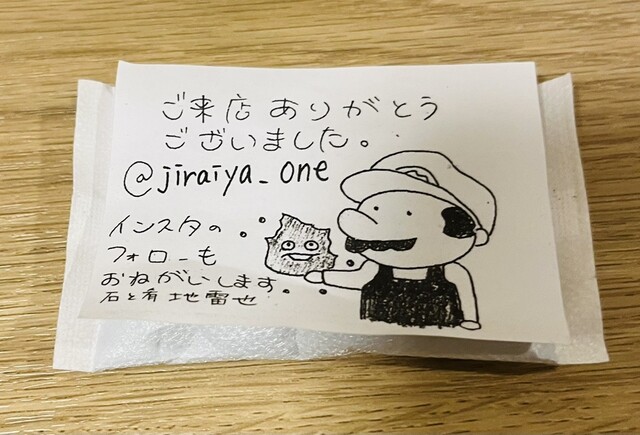 ご来店ありがとう
ございました。
@jiraiya_one
インスタの
フォローも
おねがいします。
石と肴 地雷也